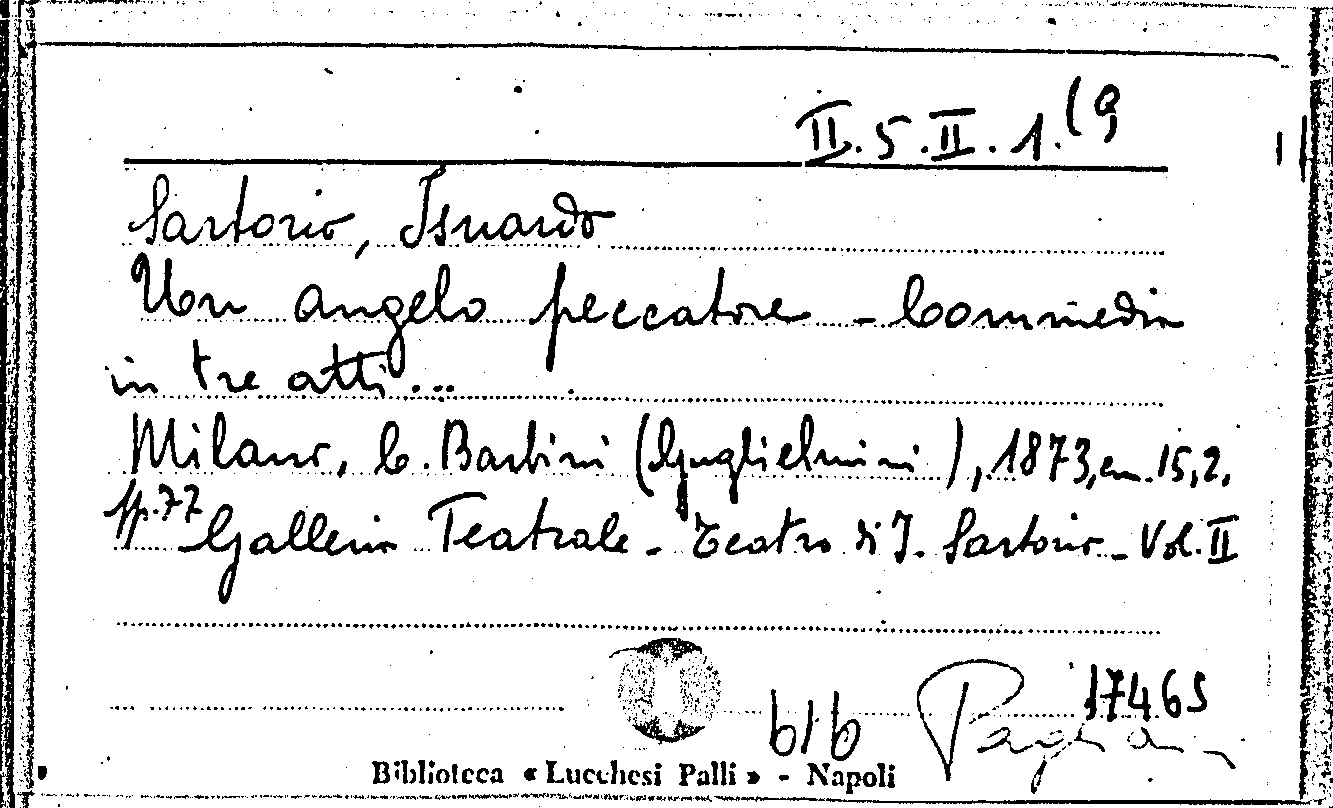 II.5.II.1.(9
Sartorio, Isnardo
Un angelo peccatore - Commedia
in tre atti...
Milano, C. Barbini (Guglielmini), 1873, cm. 15,2,
pp. 77
Galleria Teatrale - Teatro di I. Sartorio - Vol. II
17465
b/b
Biblioteca « Lucchesi Palli » - Napoli